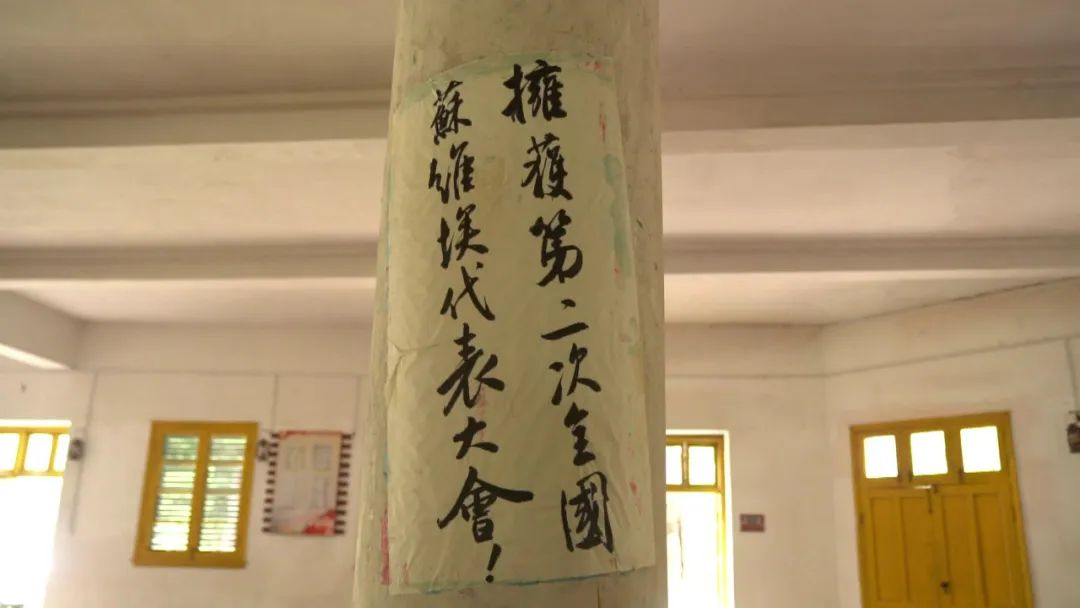 擁護第二次全國
蘇維埃代表大會！